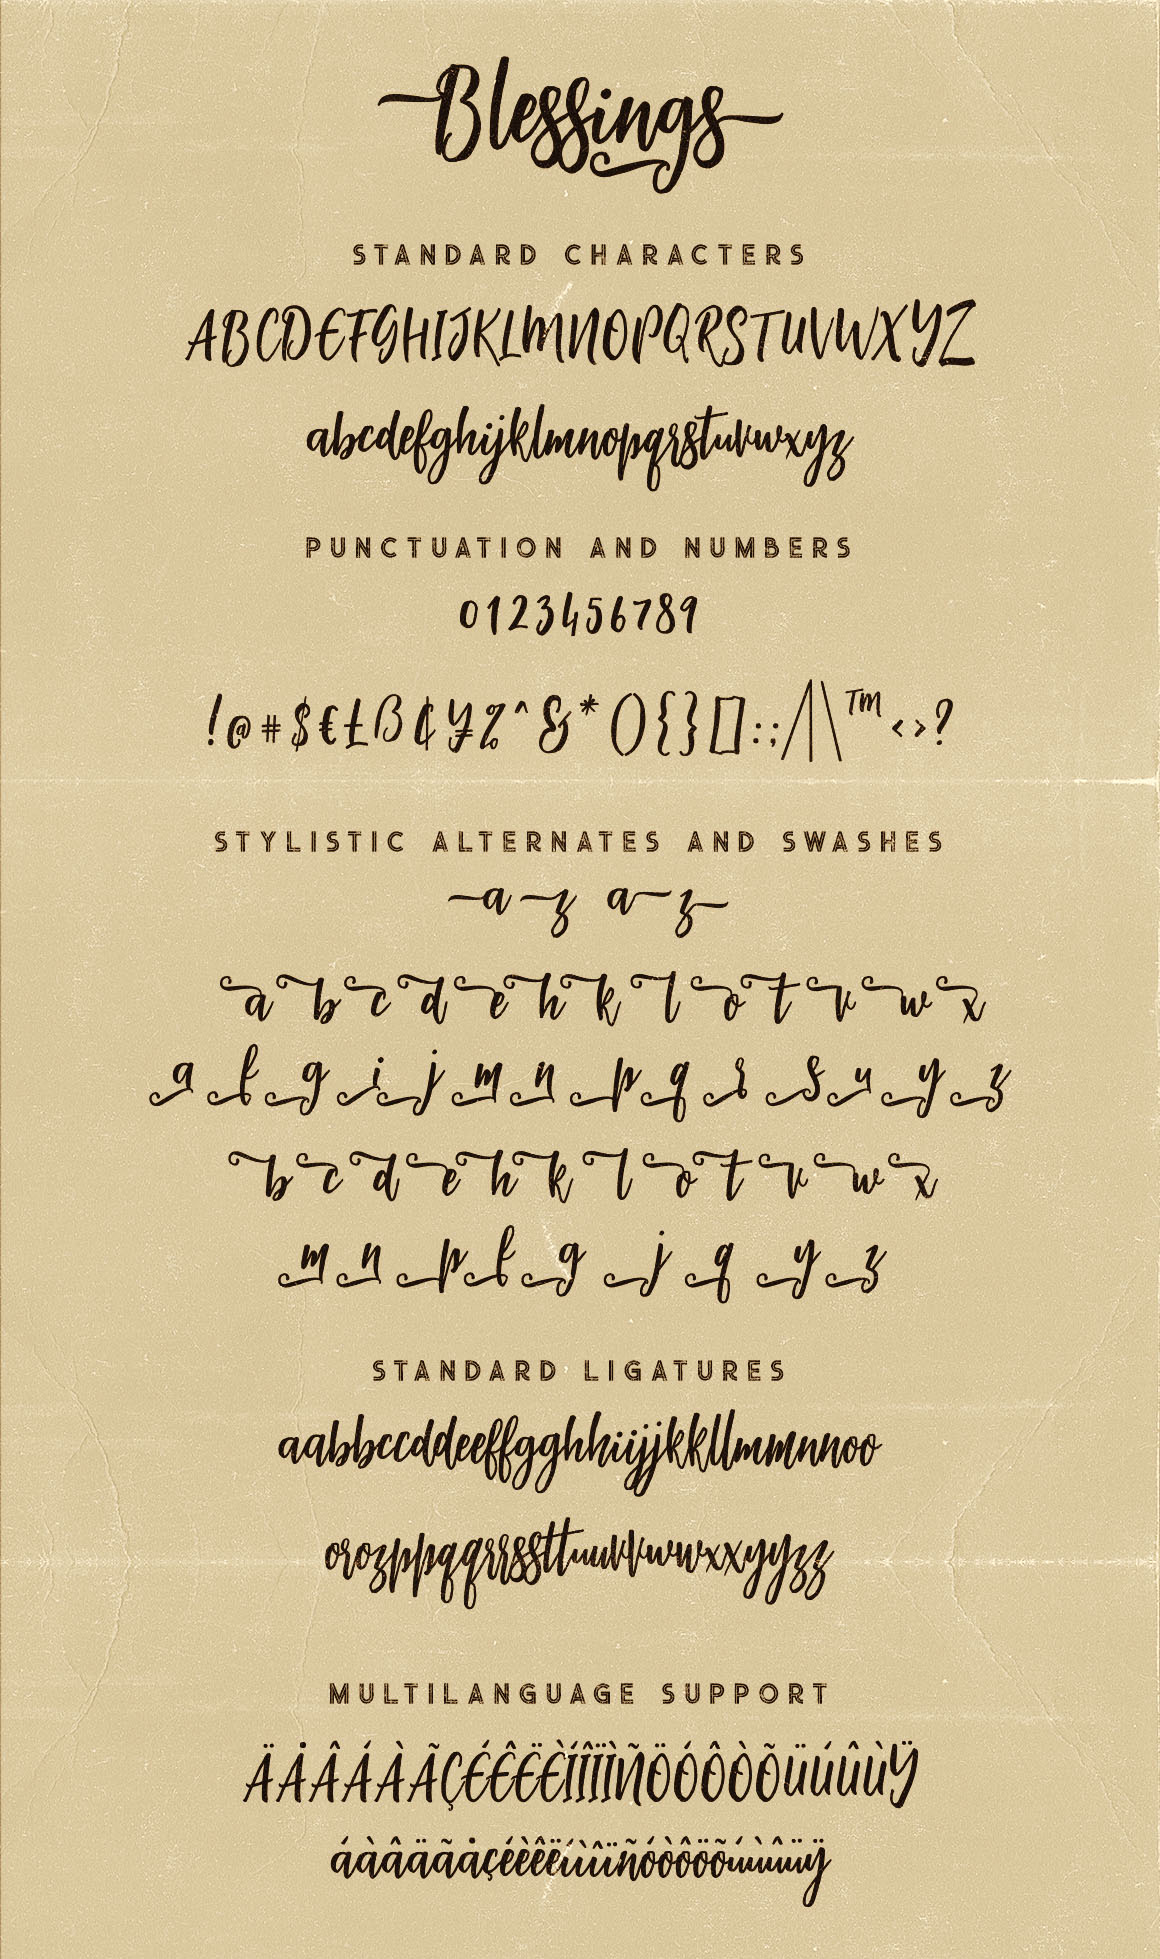 Blessings
STANDARD CHARACTERS
ABCDEFGHIJKLMNOPQRSTUVWXYZ
abcdefghijklmnopqrstuvwxyz
PUNCTUATION AND NUMBERS
0123456789
!@#$€£ß¢¥%^&*(){}[]:;/|\™<>?
STYLISTIC ALTERNATES AND SWASHES
a-z a-z
a b c d e h k l o t v w x
a f g i j m n p q r s u y z
b c d e h k l o t v w x
m n p f g j q y z
STANDARD LIGATURES
aabbccddeeffgghhiijjkkllmmnnoo
orozppqqrrssttuuvvwwxxyyzz
MULTILANGUAGE SUPPORT
ÄÅÂÁÀÃÇÉÊËÈÍÎÏÌÑÖÓÔÒÕÜÚÛÙŸ
áàâäãåçéèêëíìîïñóòôöõúùûüÿ